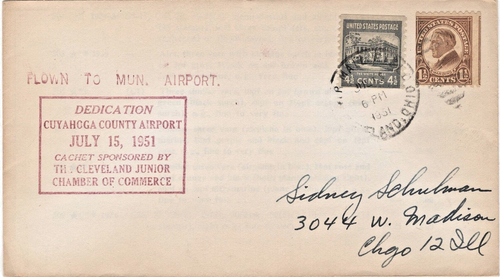 UNITED STATES POSTAGE
4½ CENTS 4½
1½ CENTS 1½
6 PM
1951
OHIO
FLOWN TO MUN. AIRPORT.
DEDICATION
CUYAHOGA COUNTY AIRPORT
JULY 15, 1951
CACHET SPONSORED BY
THE CLEVELAND JUNIOR
CHAMBER OF COMMERCE
Sidney Schulman
3044 W. Madison
Chgo 12 Ill